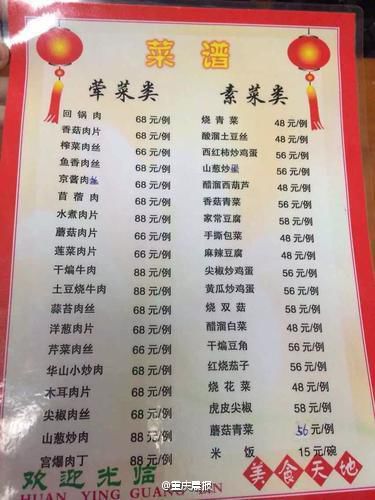 菜谱
荤菜类
回锅肉 68元/例
香菇肉片 68元/例
榨菜肉丝 66元/例
鱼香肉丝 68元/例
京酱肉丝 68元/例
苜蓿肉 68元/例
水煮肉片 88元/例
蘑菇肉片 66元/例
莲菜肉片 66元/例
干煸牛肉 88元/例
土豆烧牛肉 88元/例
蒜苔肉丝 68元/例
洋葱肉片 68元/例
芹菜肉丝 66元/例
华山小炒肉 68元/例
木耳肉片 68元/例
尖椒肉丝 68元/例
山葱炒肉 88元/例
宫爆肉丁 88元/例
素菜类
烧青菜 48元/例
酸溜土豆丝 48元/例
西红柿炒鸡蛋 56元/例
山葱炒蛋 56元/例
醋溜西葫芦 48元/例
香菇青菜 48元/例
家常豆腐 58元/例
手撕包菜 48元/例
麻辣豆腐 48元/例
尖椒炒鸡蛋 56元/例
黄瓜炒鸡蛋 56元/例
烧双菇 58元/例
醋溜白菜 48元/例
干煸豆角 56元/例
红烧茄子 56元/例
烧花菜 48元/例
虎皮尖椒 58元/例
蘑菇青菜 56元/例
米饭 15元/碗
欢迎光临
HUAN YING GUANG LIN
美食天地
@重庆晨报